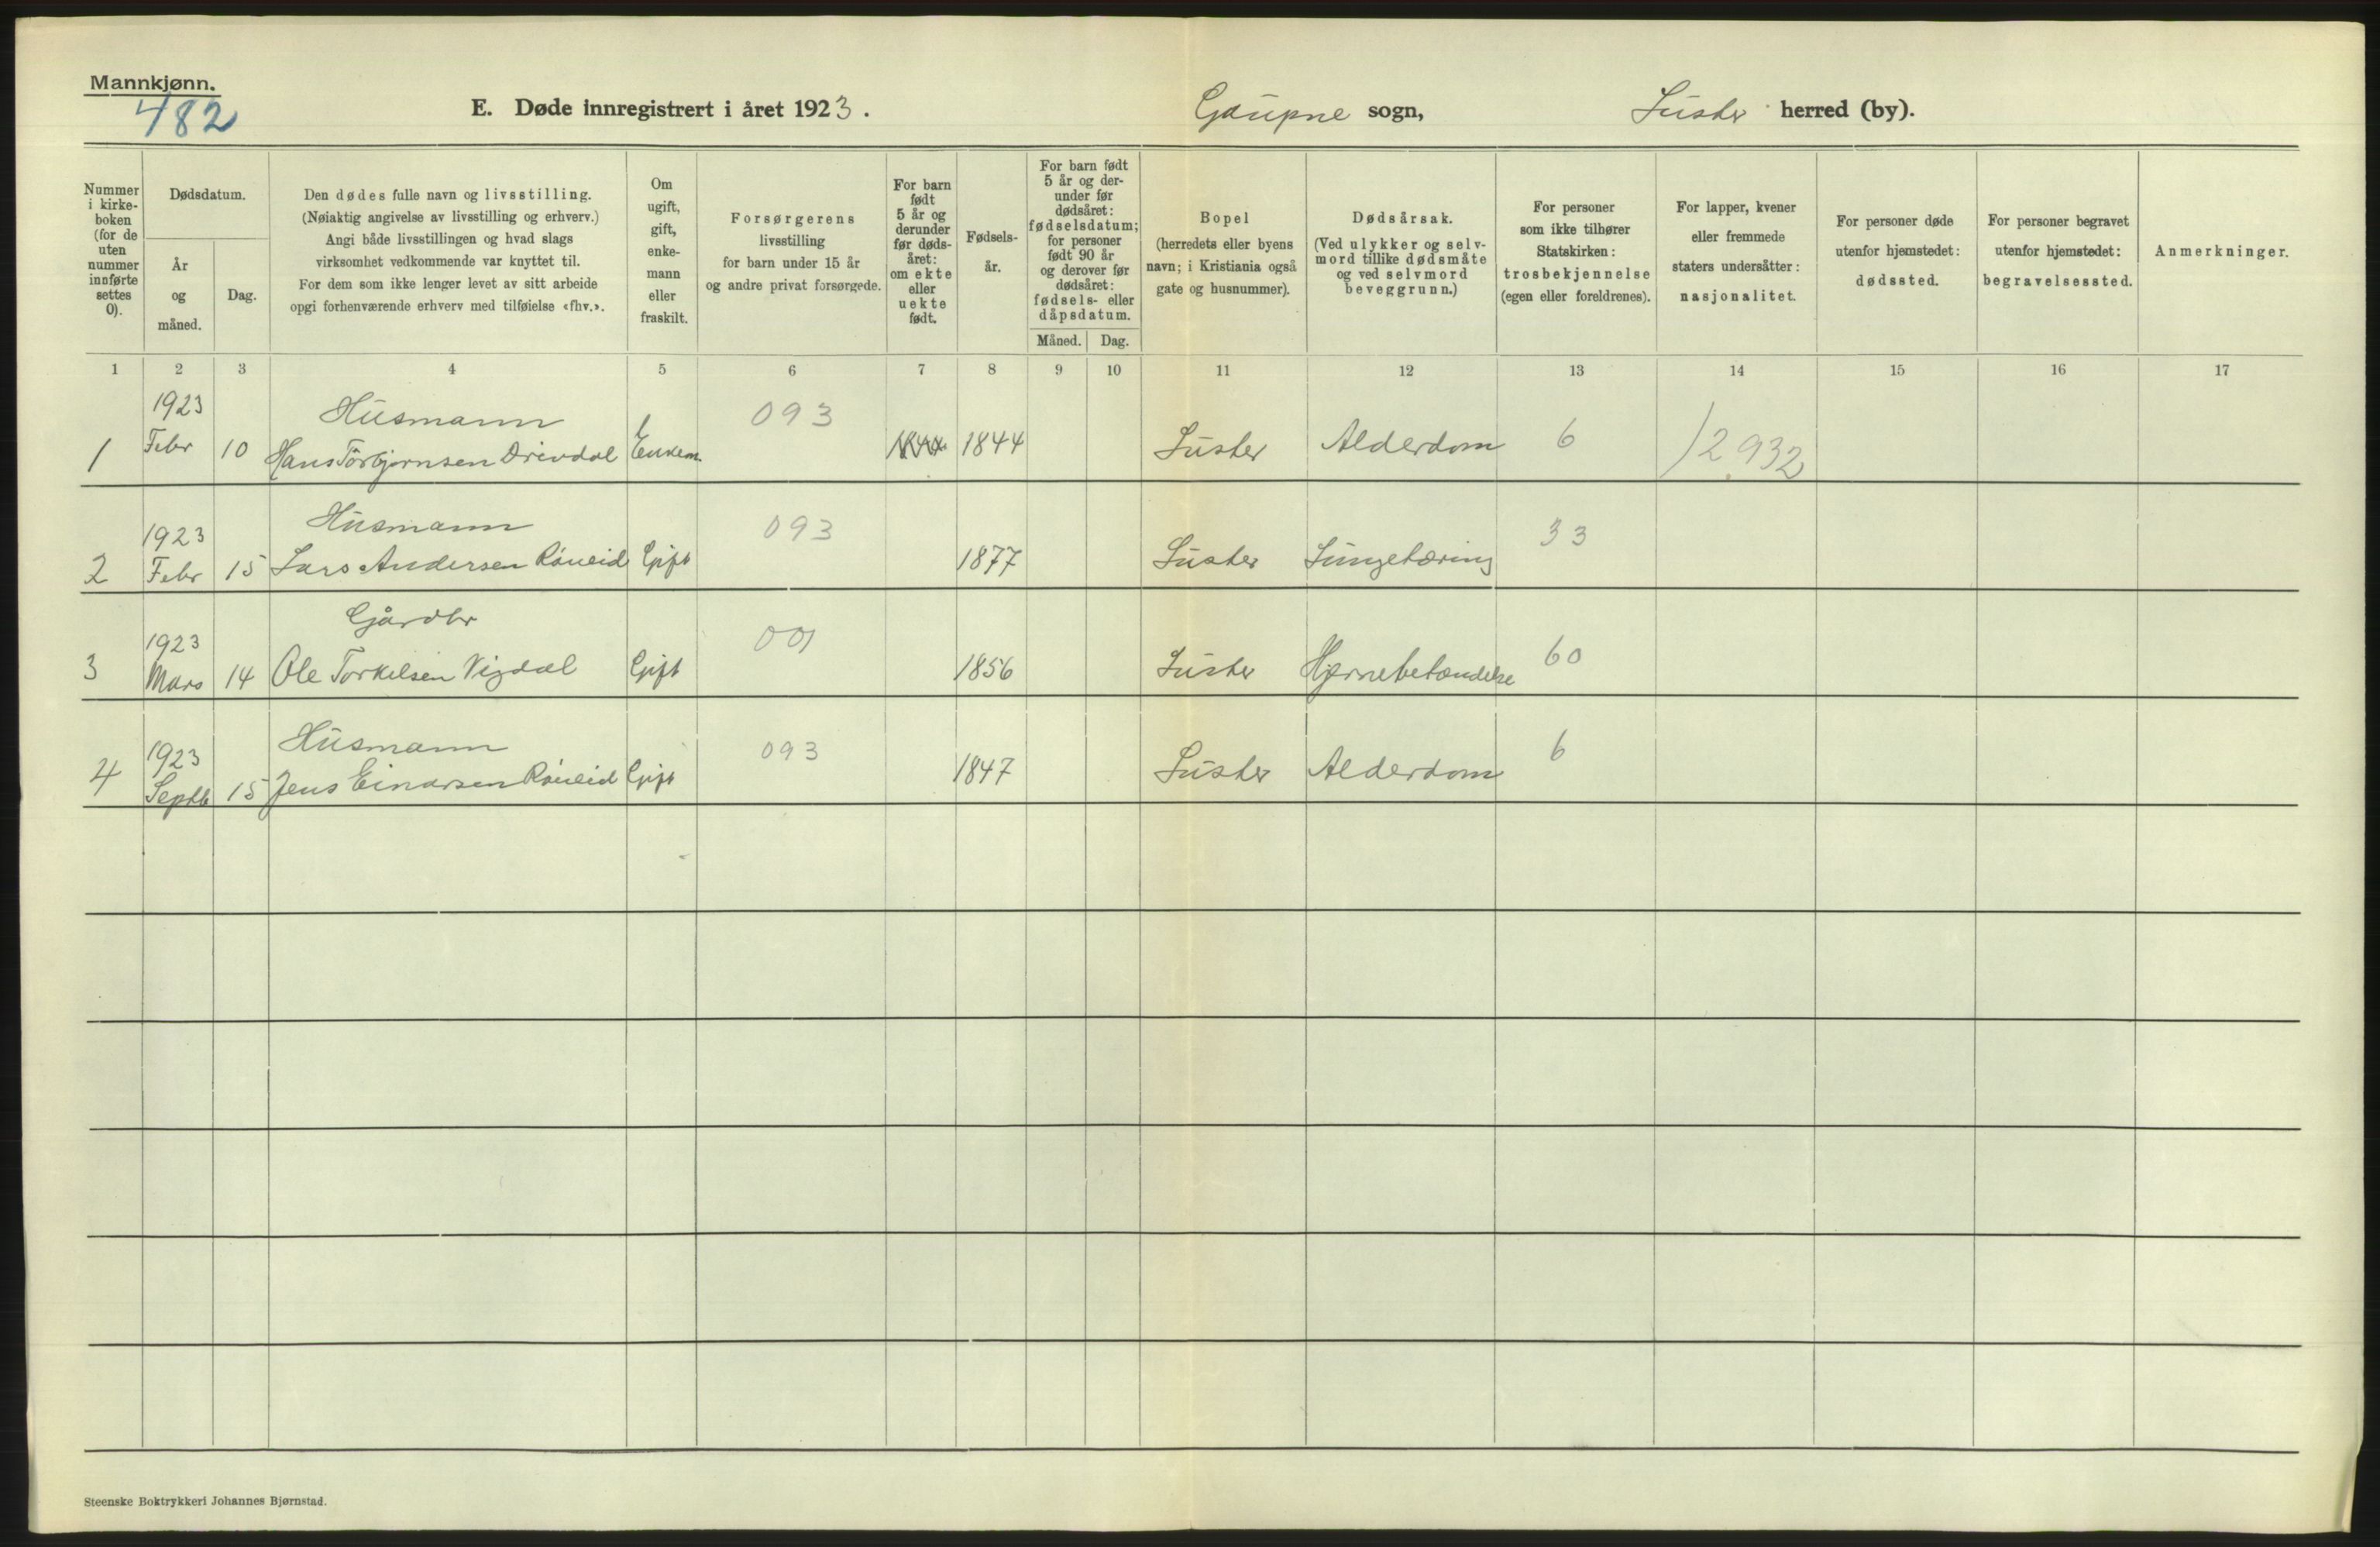 Mannkjønn.
482
E. Døde innregistrert i året 1923.
Gaupne sogn,
Luster herred (by).
Nummer i kirke-boken (for de uten nummer innførte settes 0).
Dødsdatum.
År og måned.
Dag.
Den dødes fulle navn og livsstilling.
(Nøiaktig angivelse av livsstilling og erhverv.)
Angi både livsstillingen og hvad slags
virksomhet vedkommende var knyttet til.
For dem som ikke lenger levet av sitt arbeide
opgi forhenværende erhverv med tilføielse «fhv.».
Om ugift, gift, enke-mann eller fraskilt.
Forsørgerens
livsstilling
for barn under 15 år
og andre privat forsørgede.
For barn født 5 år og derunder før døds-året: om ekte eller uekte født.
Fødsels-år.
For barn født 5 år og der-under før dødsåret: fødselsdatum; for personer født 90 år og derover før dødsåret: fødsels- eller dåpsdatum.
Måned. Dag.
Bopel
(herredets eller byens
navn; i Kristiania også
gate og husnummer).
Dødsårsak.
(Ved ulykker og selv-
mord tillike dødsmåte
og ved selvmord
beveggrunn.)
For personer
som ikke tilhører
Statskirken:
trosbekjennelse
(egen eller foreldrenes).
For lapper, kvener
eller fremmede
staters undersåtter:
nasjonalitet.
For personer døde
utenfor hjemstedet:
dødssted.
For personer begravet
utenfor hjemstedet:
begravelsessted.
Anmerkninger.
1 2 3 4 5 6 7 8 9 10 11 12 13 14 15 16 17
1923 Husmann 093
1 Febr 10 Hans Torbjørnsen Drivdal Enkem. 1844 1844 Luster Alderdom 6 12932
1923 Husmann 093 33
2 Febr 15 Lars Andersen Røneid Gift 1877 Luster Lungetæring
1923 Gårdbr 001 60
3 Mars 14 Ole Torkelsen Vigdal Gift 1856 Luster Hjernebetændelse
1923 Husmann 093 6
4 Septb 15 Jens Einarsen Røneid Gift 1847 Luster Alderdom
Steenske Boktrykkeri Johannes Bjørnstad.